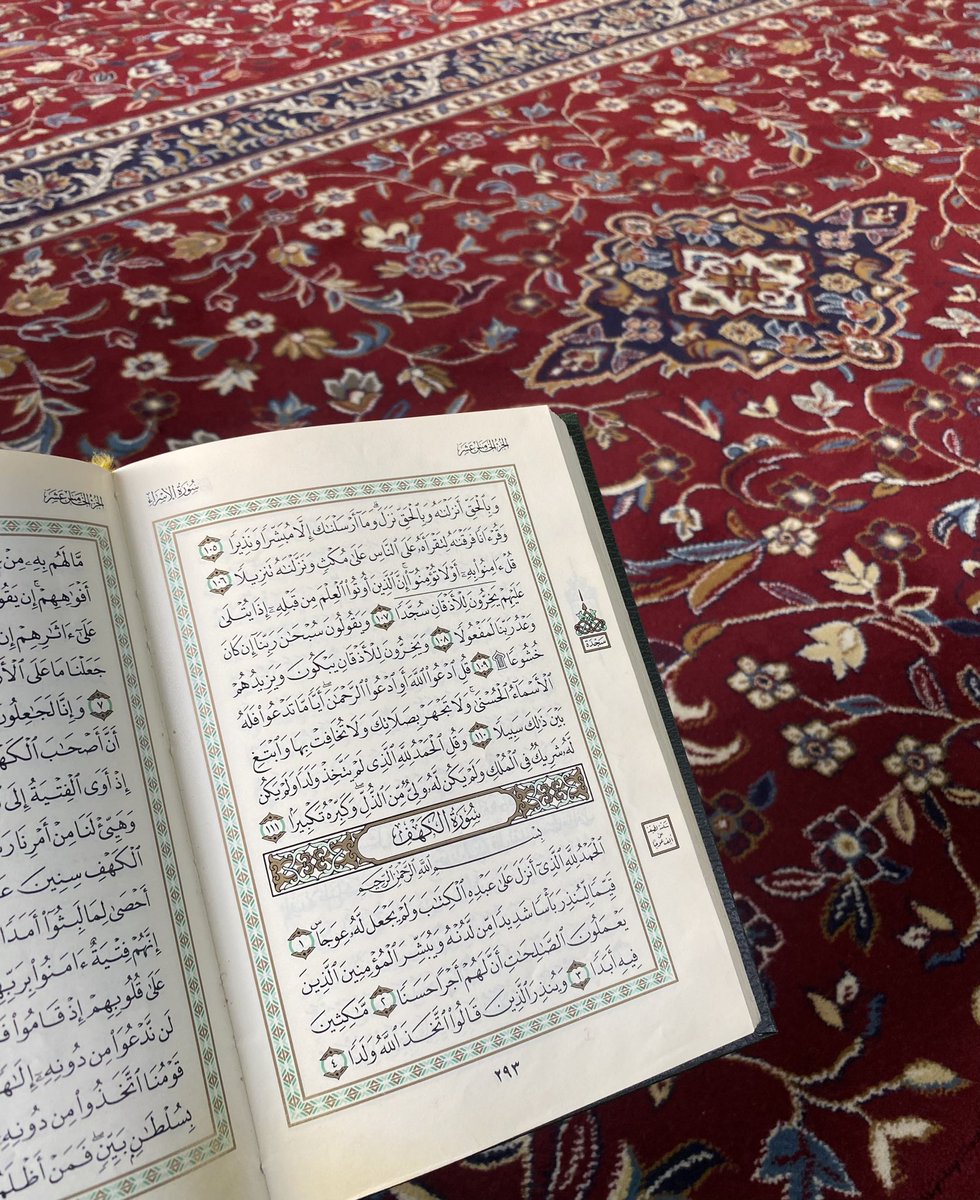 الجزء الخامس عشر
سُورَةُ الإِسْرَاءِ
وَبِالْحَقِّ أَنزَلْنَٰهُ وَبِالْحَقِّ نَزَلَ ۗ وَمَآ أَرْسَلْنَٰكَ إِلَّا مُبَشِّرًا وَنَذِيرًا ١٠٥
وَقُرْءَانًا فَرَقْنَٰهُ لِتَقْرَأَهُۥ عَلَى النَّاسِ عَلَىٰ مُكْثٍ وَنَزَّلْنَٰهُ تَنزِيلًا ١٠٦
قُلْ ءَامِنُوا۟ بِهِۦٓ أَوْ لَا تُؤْمِنُوٓا۟ ۚ إِنَّ الَّذِينَ أُوتُوا۟ الْعِلْمَ مِن قَبْلِهِۦٓ إِذَا يُتْلَىٰ
عَلَيْهِمْ يَخِرُّونَ لِلْأَذْقَانِ سُجَّدًا ١٠٧ وَيَقُولُونَ سُبْحَٰنَ رَبِّنَآ إِن كَانَ
وَعْدُ رَبِّنَا لَمَفْعُولًا ١٠٨ وَيَخِرُّونَ لِلْأَذْقَانِ يَبْكُونَ وَيَزِيدُهُمْ
خُشُوعًا ۩ ١٠٩ قُلِ ادْعُوا۟ اللَّهَ أَوِ ادْعُوا۟ الرَّحْمَٰنَ ۖ أَيًّا مَّا تَدْعُوا۟ فَلَهُ
الْأَسْمَآءُ الْحُسْنَىٰ ۚ وَلَا تَجْهَرْ بِصَلَاتِكَ وَلَا تُخَافِتْ بِهَا وَابْتَغِ
بَيْنَ ذَٰلِكَ سَبِيلًا ١١٠ وَقُلِ الْحَمْدُ لِلَّهِ الَّذِى لَمْ يَتَّخِذْ وَلَدًا وَلَمْ يَكُن
لَّهُۥ شَرِيكٌ فِى الْمُلْكِ وَلَمْ يَكُن لَّهُۥ وَلِىٌّ مِّنَ الذُّلِّ ۖ وَكَبِّرْهُ تَكْبِيرًا ١١١
سُورَةُ الْكَهْفِ
بِسْمِ اللَّهِ الرَّحْمَٰنِ الرَّحِيمِ
الْحَمْدُ لِلَّهِ الَّذِىٓ أَنزَلَ عَلَىٰ عَبْدِهِ الْكِتَٰبَ وَلَمْ يَجْعَل لَّهُۥ عِوَجَا ۜ ١
قَيِّمًا لِّيُنذِرَ بَأْسًا شَدِيدًا مِّن لَّدُنْهُ وَيُبَشِّرَ الْمُؤْمِنِينَ الَّذِينَ
يَعْمَلُونَ الصَّٰلِحَٰتِ أَنَّ لَهُمْ أَجْرًا حَسَنًا ٢ مَّٰكِثِينَ
فِيهِ أَبَدًا ٣ وَيُنذِرَ الَّذِينَ قَالُوا۟ اتَّخَذَ اللَّهُ وَلَدًا ٤
٢٩٣
سجدة
الجزء الخامس عشر
مَّا لَهُم بِهِۦ مِنْ
أَفْوَٰهِهِمْ ۚ إِن يَقُو
عَلَىٰٓ ءَاثَٰرِهِمْ إِن
جَعَلْنَا مَا عَلَى الْأَ
٧ وَإِنَّا لَجَٰعِلُونَ
أَنَّ أَصْحَٰبَ الْكَهْ
إِذْ أَوَى الْفِتْيَةُ إِلَى
وَهَيِّئْ لَنَا مِنْ أَمْرِنَا رَ
الْكَهْفِ سِنِينَ عَ
أَحْصَىٰ لِمَا لَبِثُوٓا۟ أَمَدًا
إِنَّهُمْ فِتْيَةٌ ءَامَنُوا۟ بِرَبِّهِ
عَلَىٰ قُلُوبِهِمْ إِذْ قَامُوا۟ فَ
لَن نَّدْعُوَا۟ مِن دُونِهِۦٓ إِلَٰهًا
قَوْمُنَا اتَّخَذُوا۟ مِن دُونِهِۦٓ
بِسُلْطَٰنٍۭ بَيِّنٍ ۖ فَمَنْ أَظْلَمُ